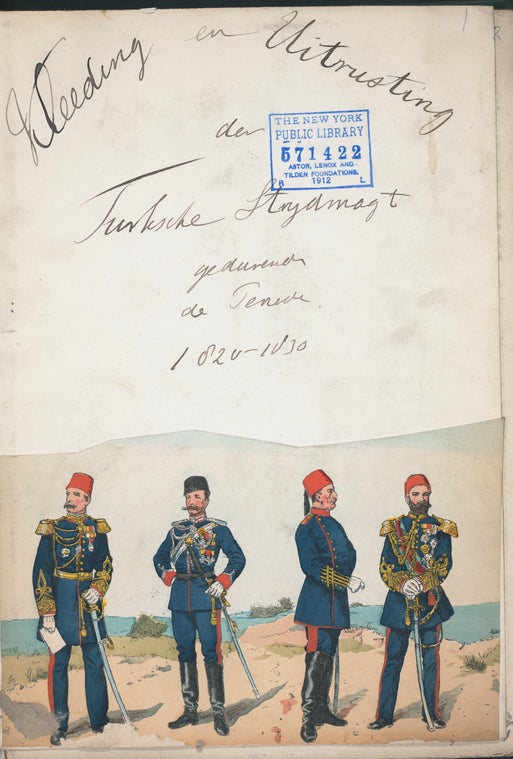 1
2
Kleeding en Uitrusting
der
THE NEW YORK
PUBLIC LIBRARY
571422
ASTOR, LENOX AND
TILDEN FOUNDATIONS.
R 1912 L
Turksche Strydmagt
gedurende
de
1820-1830